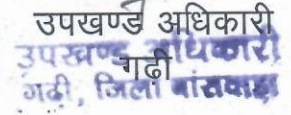 उपखण्ड अधिकारी
उपखण्ड अधिकारी
गढ़ी
गढी, जिला बांसवाड़ा